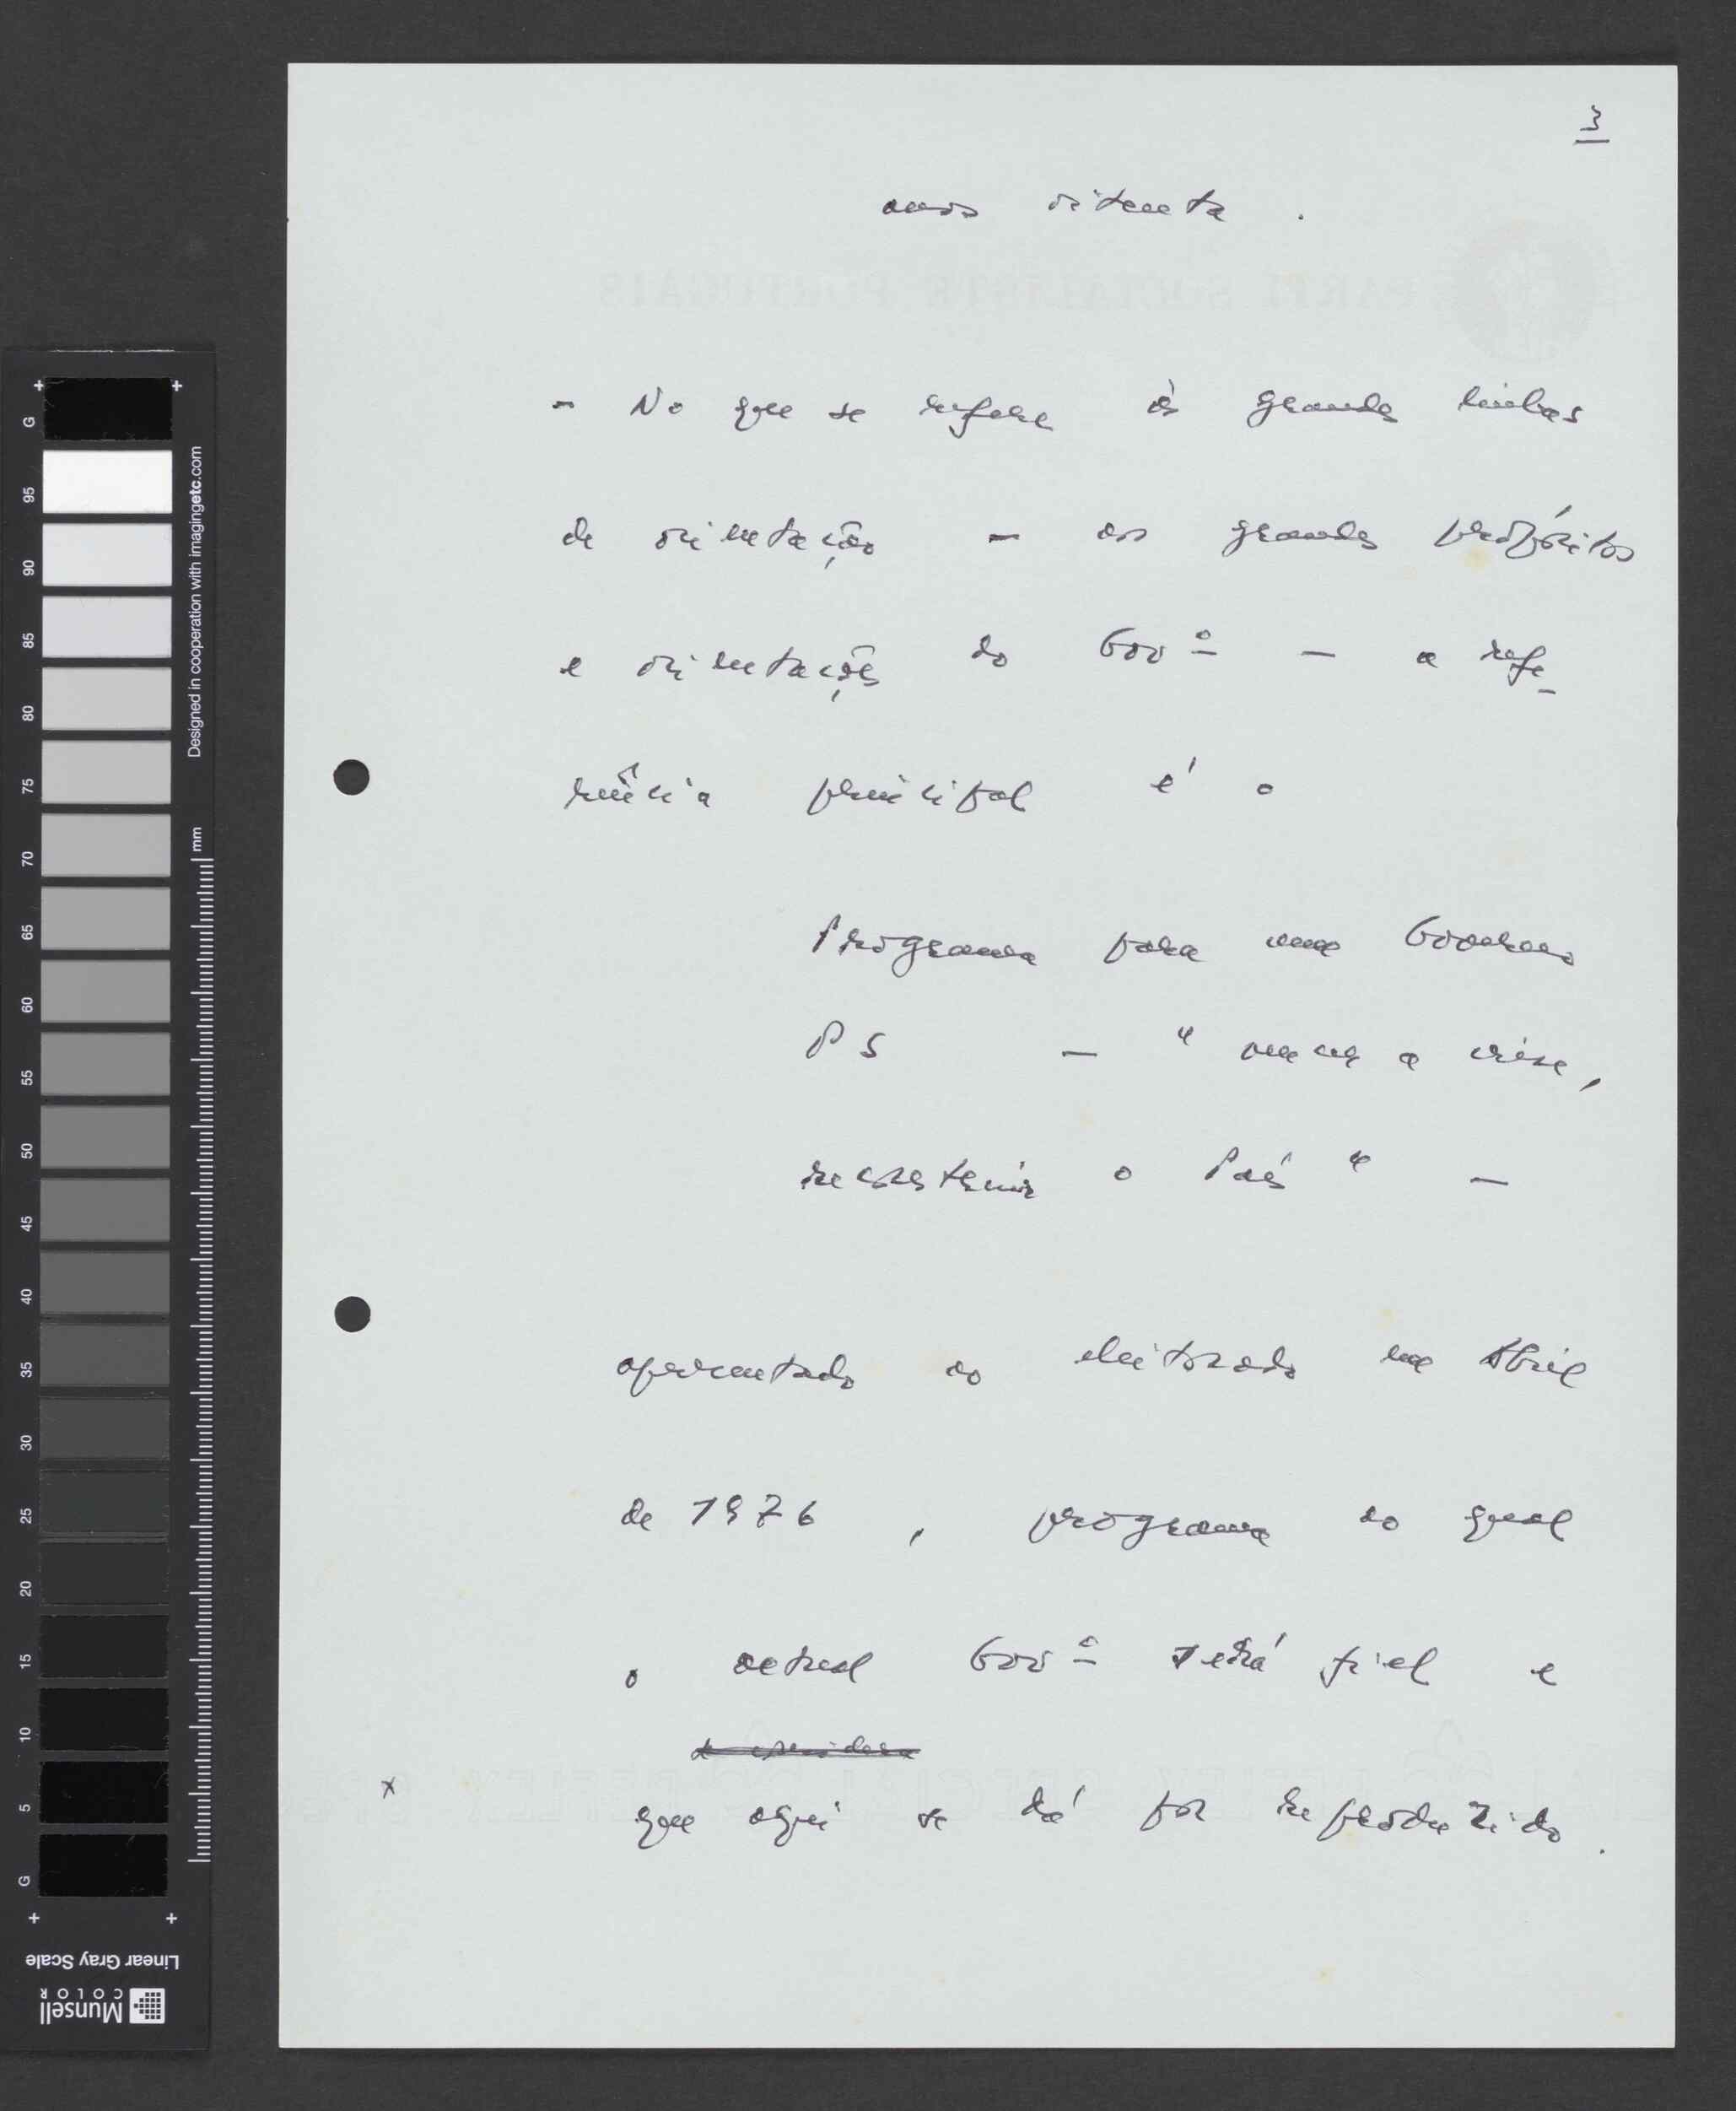 3
anos oitenta.
PARTI SOCIALISTE PORTUGAIS
- No que se refere às grandes linhas
de orientação — aos grandes propósitos
e orientações do Govº — a refe-
rência principal é o
Programa para um Governo
PS — "vencer a crise,
reconstruir o País" —
apresentado ao eleitorado em Abril
de 1976, programa ao qual
o actual Govº será fiel e
x que aqui se dá por reproduzido.
G
95
90
85
80
75
70
65
60
55
50
45
40
35
30
25
20
15
10
5
G
Designed in cooperation with imagingetc.com
mm
Linear Gray Scale
Munsell
COLOR